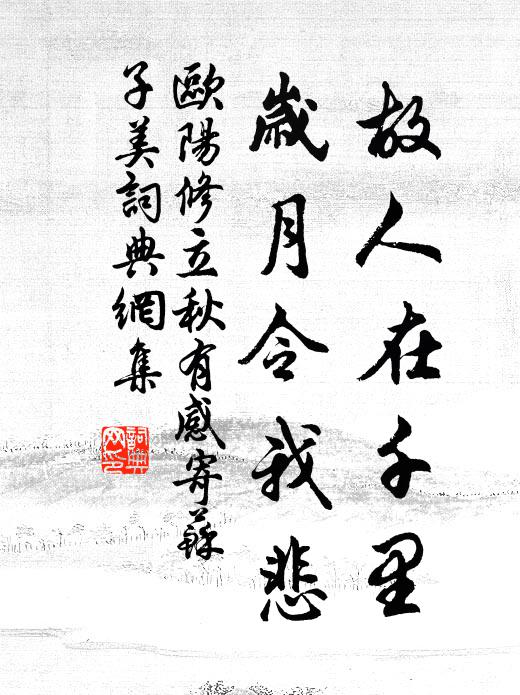 故人在千里
歲月令我悲
歐陽修立秋有感寄蘇
子美詞典網集
詞典
网印